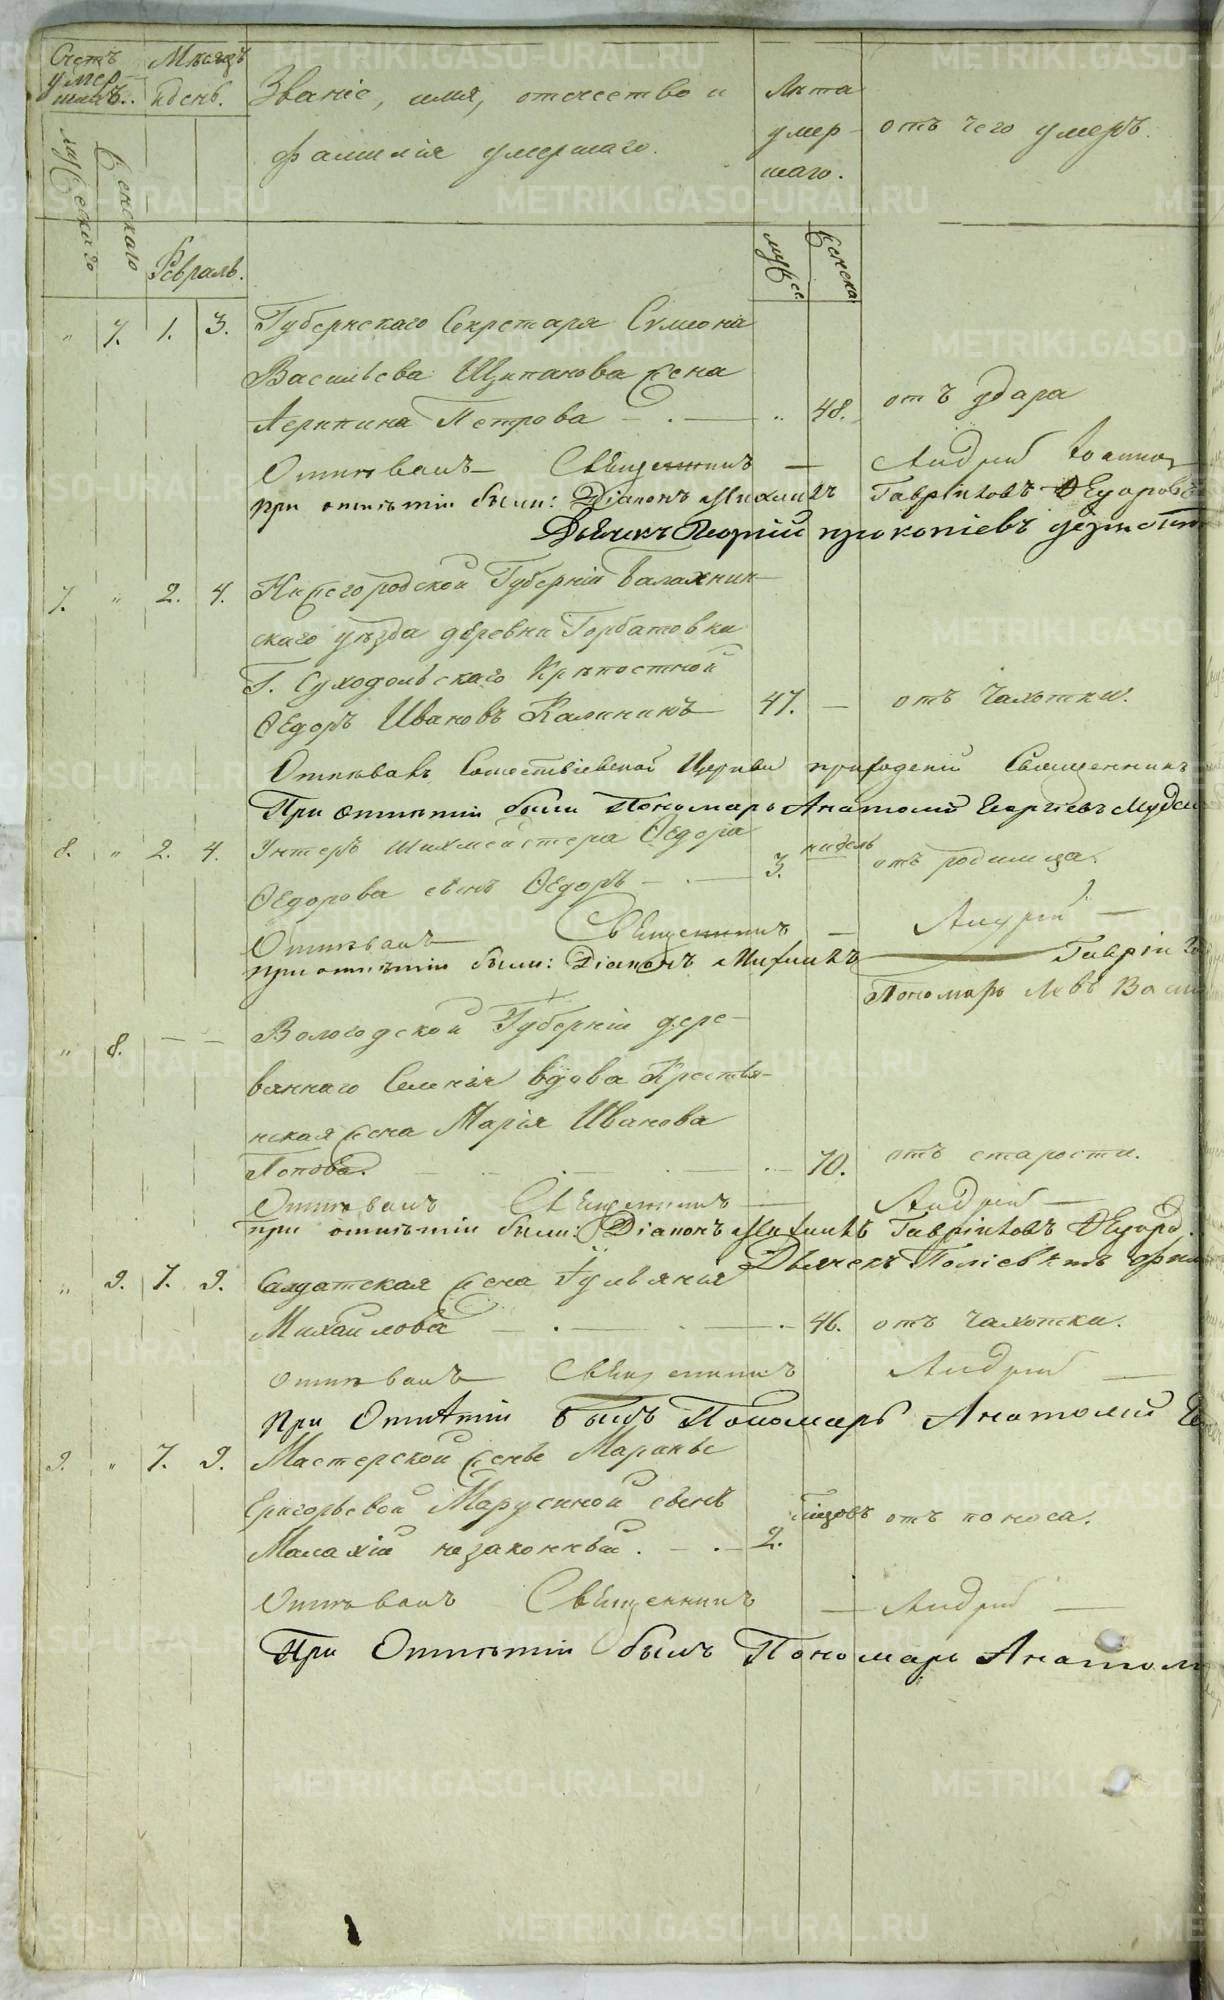 Счетъ умершихъ.
Мѣсяцъ и день.
Званіе, имя, отчество и
фамилія умершаго.
Лѣта умершаго.
отъ чего умеръ.
мужескаго
женскаго
Февраль.
мужес.
женска
" 7. 1. 3. Губернскаго Секретаря Сумеона
Васильева Щипанова жена
Агрипина Петрова — . — " 48. отъ удара
Отпѣвалъ Священникъ — Андрей Іоаннов
При отпѣтіи были: Діаконъ Михаилъ Гавриловъ Ѳедоровъ
Дьячекъ Георгій Прокопіевъ
7. " 2. 4. Нижегородской Губерніи Балахнин-
скаго уѣзда деревни Горбатовки
Г. Суходольскаго Крѣпостной
Ѳедоръ Ивановъ Калининъ 47. — отъ чахотки.
Отпѣвалъ Сошествіевской Церкви приходскій Священникъ
При Отпѣтіи были Пономарь Анатолій Георгіевъ
8. " 2. 4. Унтеръ шихмейстера Ѳедора
Ѳедорова сынъ Ѳедоръ — . — 3. недѣль отъ родимца.
Отпѣвалъ Священникъ — Андрей —
При отпѣтіи были: Діаконъ Михаилъ Гаврил
Пономарь Левъ Васи
" 8. — — Вологодской Губерніи дере-
ваннаго Селенія вдова Крестья-
нская жена Марія Иванова
Попова. 70. отъ старости.
Отпѣвалъ Священникъ — Андрей —
При отпѣтіи были: Діаконъ Михаилъ Гавриловъ Ѳедоро
Дьячекъ
" 9. 7. 9. Салдатская жена Іульянія
Михайлова — . — . — 46. отъ чахотки.
Отпѣвалъ Священникъ Андрей —
При Отпѣтіи былъ Пономарь Анатолій Ге
9. " 7. 9. Мастерской женке Маранье
Григорьевой Марусиной сынъ
Малахій незаконный. — . — 2. отъ поноса.
Отпѣвалъ Священникъ — Андрей —
При Отпѣтіи былъ Пономарь Анатол
METRIKI.GASO-URAL.RU